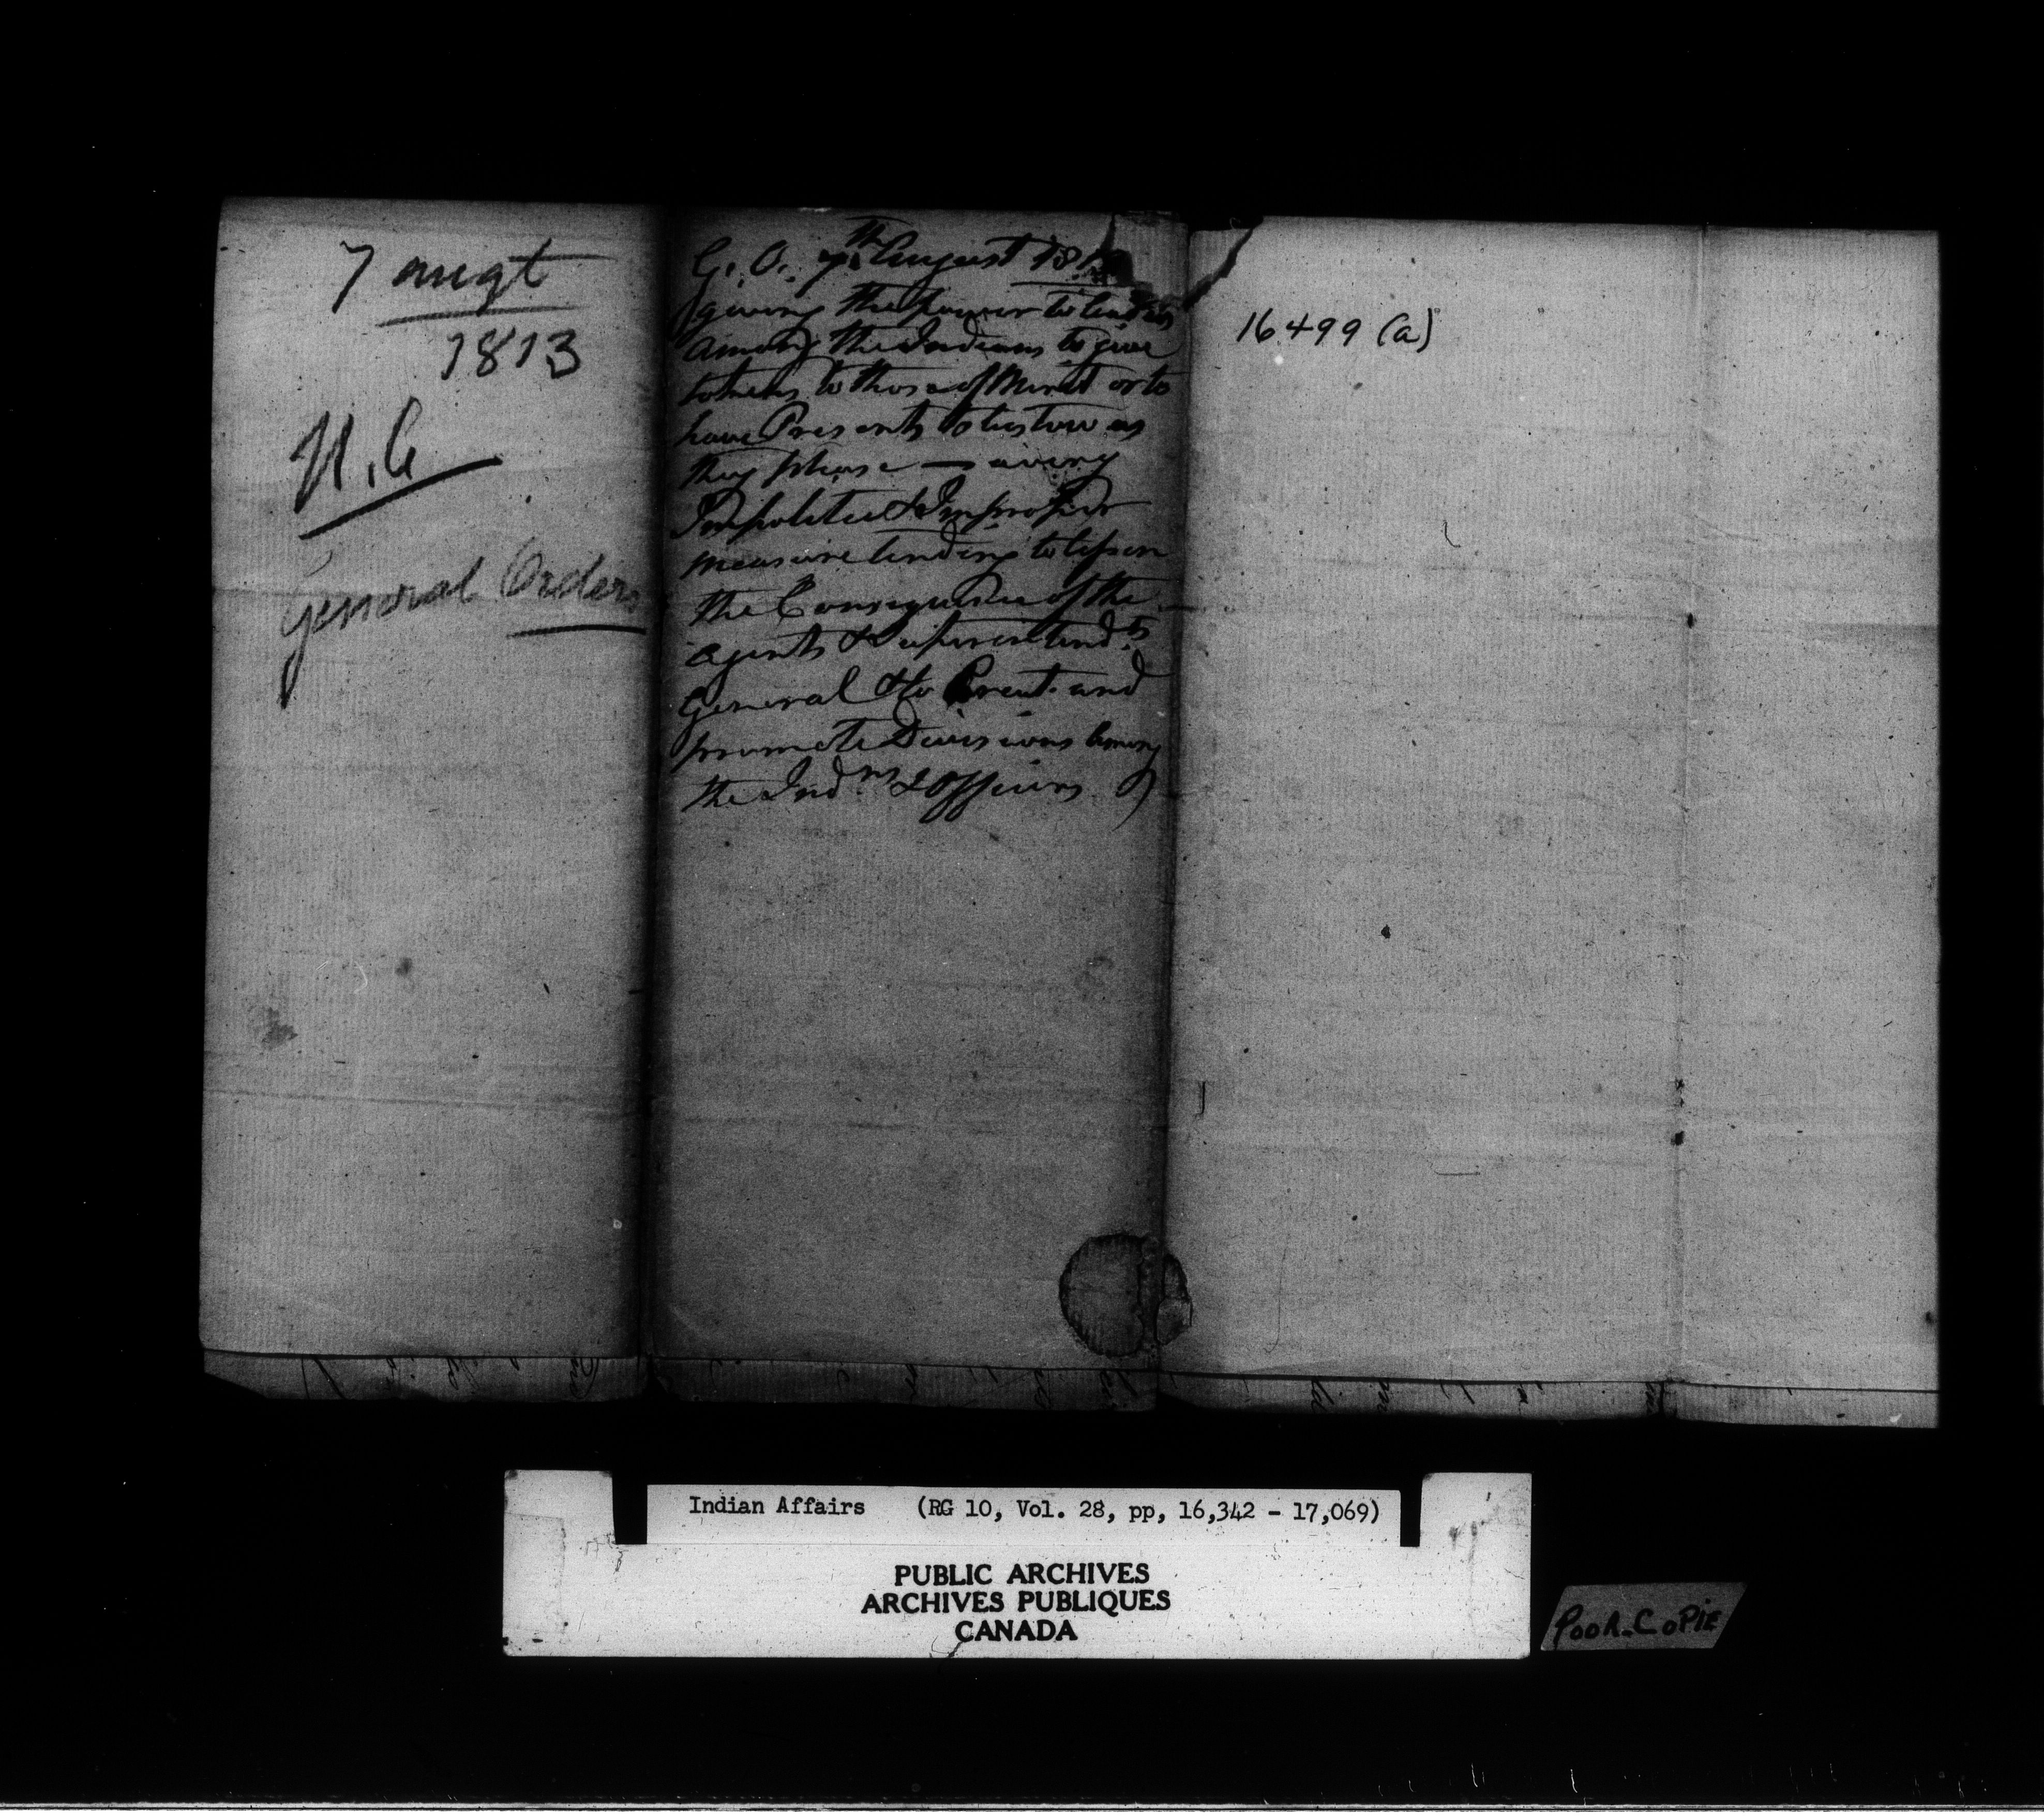 7 augt
1813
General Orders
G. O. 7th August 181
giving the power to Leaders
among the Indians to give
tokens to those of Merit or to
have Presents to bestow as
they please — a very
Impolitic & Improper
measure tending to lessen
the Consequence of the
Agents & Superintendts
General & to Creat and
promote Divisions among
the Indns & Officers
16499 (a)
Indian Affairs (RG 10, Vol. 28, pp, 16,342 - 17,069)
PUBLIC ARCHIVES
ARCHIVES PUBLIQUES
CANADA
POOR-COPIE